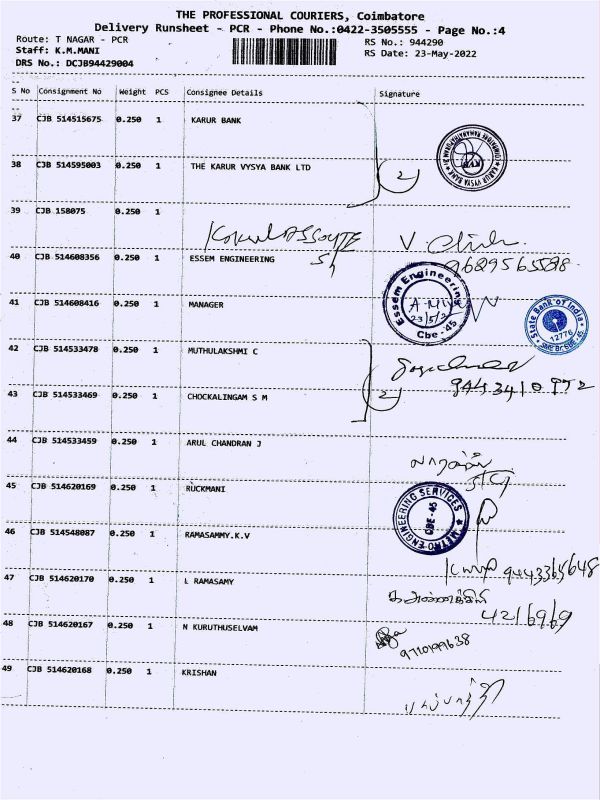 THE PROFESSIONAL COURIERS, Coimbatore
Delivery Runsheet - PCR - Phone No.:0422-3505555 - Page No.:4
Route: T NAGAR - PCR
RS No.: 944290
Staff: K.M.MANI
RS Date: 23-May-2022
DRS No.: DCJB94429004
S No Consignment No Weight PCS Consignee Details Signature
37 CJB 514515675 0.250 1 KARUR BANK
38 CJB 514595003 0.250 1 THE KARUR VYSYA BANK LTD
2
KARUR VYSYA BANK
39 CJB 158075 0.250 1
40 CJB 514608356 0.250 1 ESSEM ENGINEERING
41 CJB 514608416 0.250 1 MANAGER
Essem Engineering
23/5/2
Cbe -45
State Bank of India
12776
42 CJB 514533478 0.250 1 MUTHULAKSHMI C
43 CJB 514533469 0.250 1 CHOCKALINGAM S M
2
44 CJB 514533459 0.250 1 ARUL CHANDRAN J
45 CJB 514620169 0.250 1 RUCKMANI
METRO ENGINEERING SERVICES
CBE -45
46 CJB 514548087 0.250 1 RAMASAMMY.K.V
47 CJB 514620170 0.250 1 L RAMASAMY
4216969
48 CJB 514620167 0.250 1 N KURUTHUSELVAM
49 CJB 514620168 0.250 1 KRISHAN